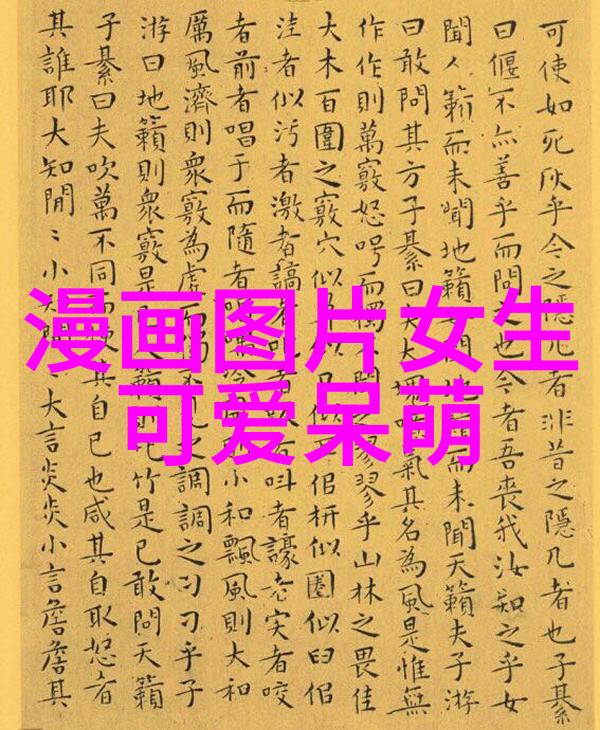 漫画图片女生
可爱呆萌
可使如死灰乎今之隱几者非昔之隱几者也子綦
曰偃不亦善乎而問之也今者吾喪我汝知之乎女
聞人籟而未聞地籟聞地而未聞天籟夫子游
曰敢問其方子綦曰夫大塊噫氣其名為風是惟無
作作則萬竅怒呺而獨不聞之翏翏乎山林之畏佳
大木百圍之竅穴似鼻似口似佀枅似圈似臼佀
洼者似污者激者謞者者叫者譹者宎者咬
者前者唱于而隨者風小和飄風則大和
厲風濟則衆竅為虛而見之調調之刁刁乎子
游曰地籟則衆竅是籟則竹是已敢問天籟
子綦曰夫吹萬不同而其自已也咸其自取怒者
其誰耶大知閒〻小知大言炎炎小言詹詹其